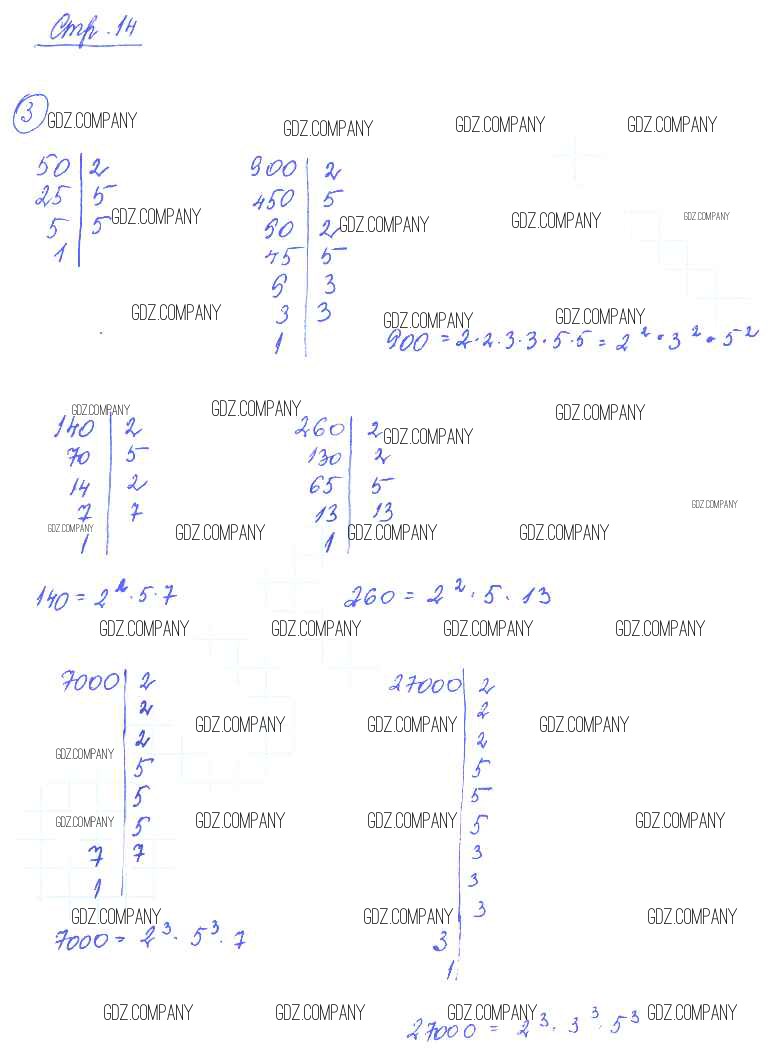 Стр. 14
3 GDZ.COMPANY GDZ.COMPANY GDZ.COMPANY GDZ.COMPANY
50 | 2 900 | 2
25 | 5 450 | 5
5 | 5 GDZ.COMPANY 90 | 2 GDZ.COMPANY GDZ.COMPANY GDZ.COMPANY
1 | 45 | 5
9 | 3
GDZ.COMPANY 3 | 3 GDZ.COMPANY GDZ.COMPANY
1 | 900 = 2·2·3·3·5·5 = 2²·3²·5²
GDZ.COMPANY GDZ.COMPANY GDZ.COMPANY
140 | 2 260 | 2 GDZ.COMPANY
70 | 5 130 | 2
14 | 2 65 | 5
7 | 7 13 | 13 GDZ.COMPANY
GDZ.COMPANY GDZ.COMPANY GDZ.COMPANY GDZ.COMPANY
1 | 1 |
140 = 2²·5·7 260 = 2²·5·13
GDZ.COMPANY GDZ.COMPANY GDZ.COMPANY GDZ.COMPANY
7000 | 2 27000 | 2
| 2 | 2
GDZ.COMPANY GDZ.COMPANY GDZ.COMPANY
| 2 | 2
GDZ.COMPANY
| 5 | 5
| 5 | 5
GDZ.COMPANY | 5 GDZ.COMPANY GDZ.COMPANY | 5 GDZ.COMPANY
7 | 7 | 3
1 | | 3
GDZ.COMPANY GDZ.COMPANY | 3 GDZ.COMPANY
7000 = 2³·5³·7 3 |
1 |
GDZ.COMPANY GDZ.COMPANY GDZ.COMPANY GDZ.COMPANY
27000 = 2³·3³·5³